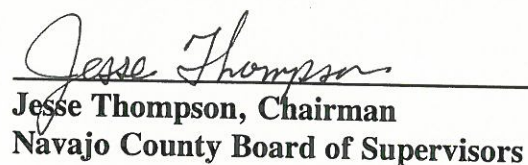 Jesse Thompson
Jesse Thompson, Chairman
Navajo County Board of Supervisors